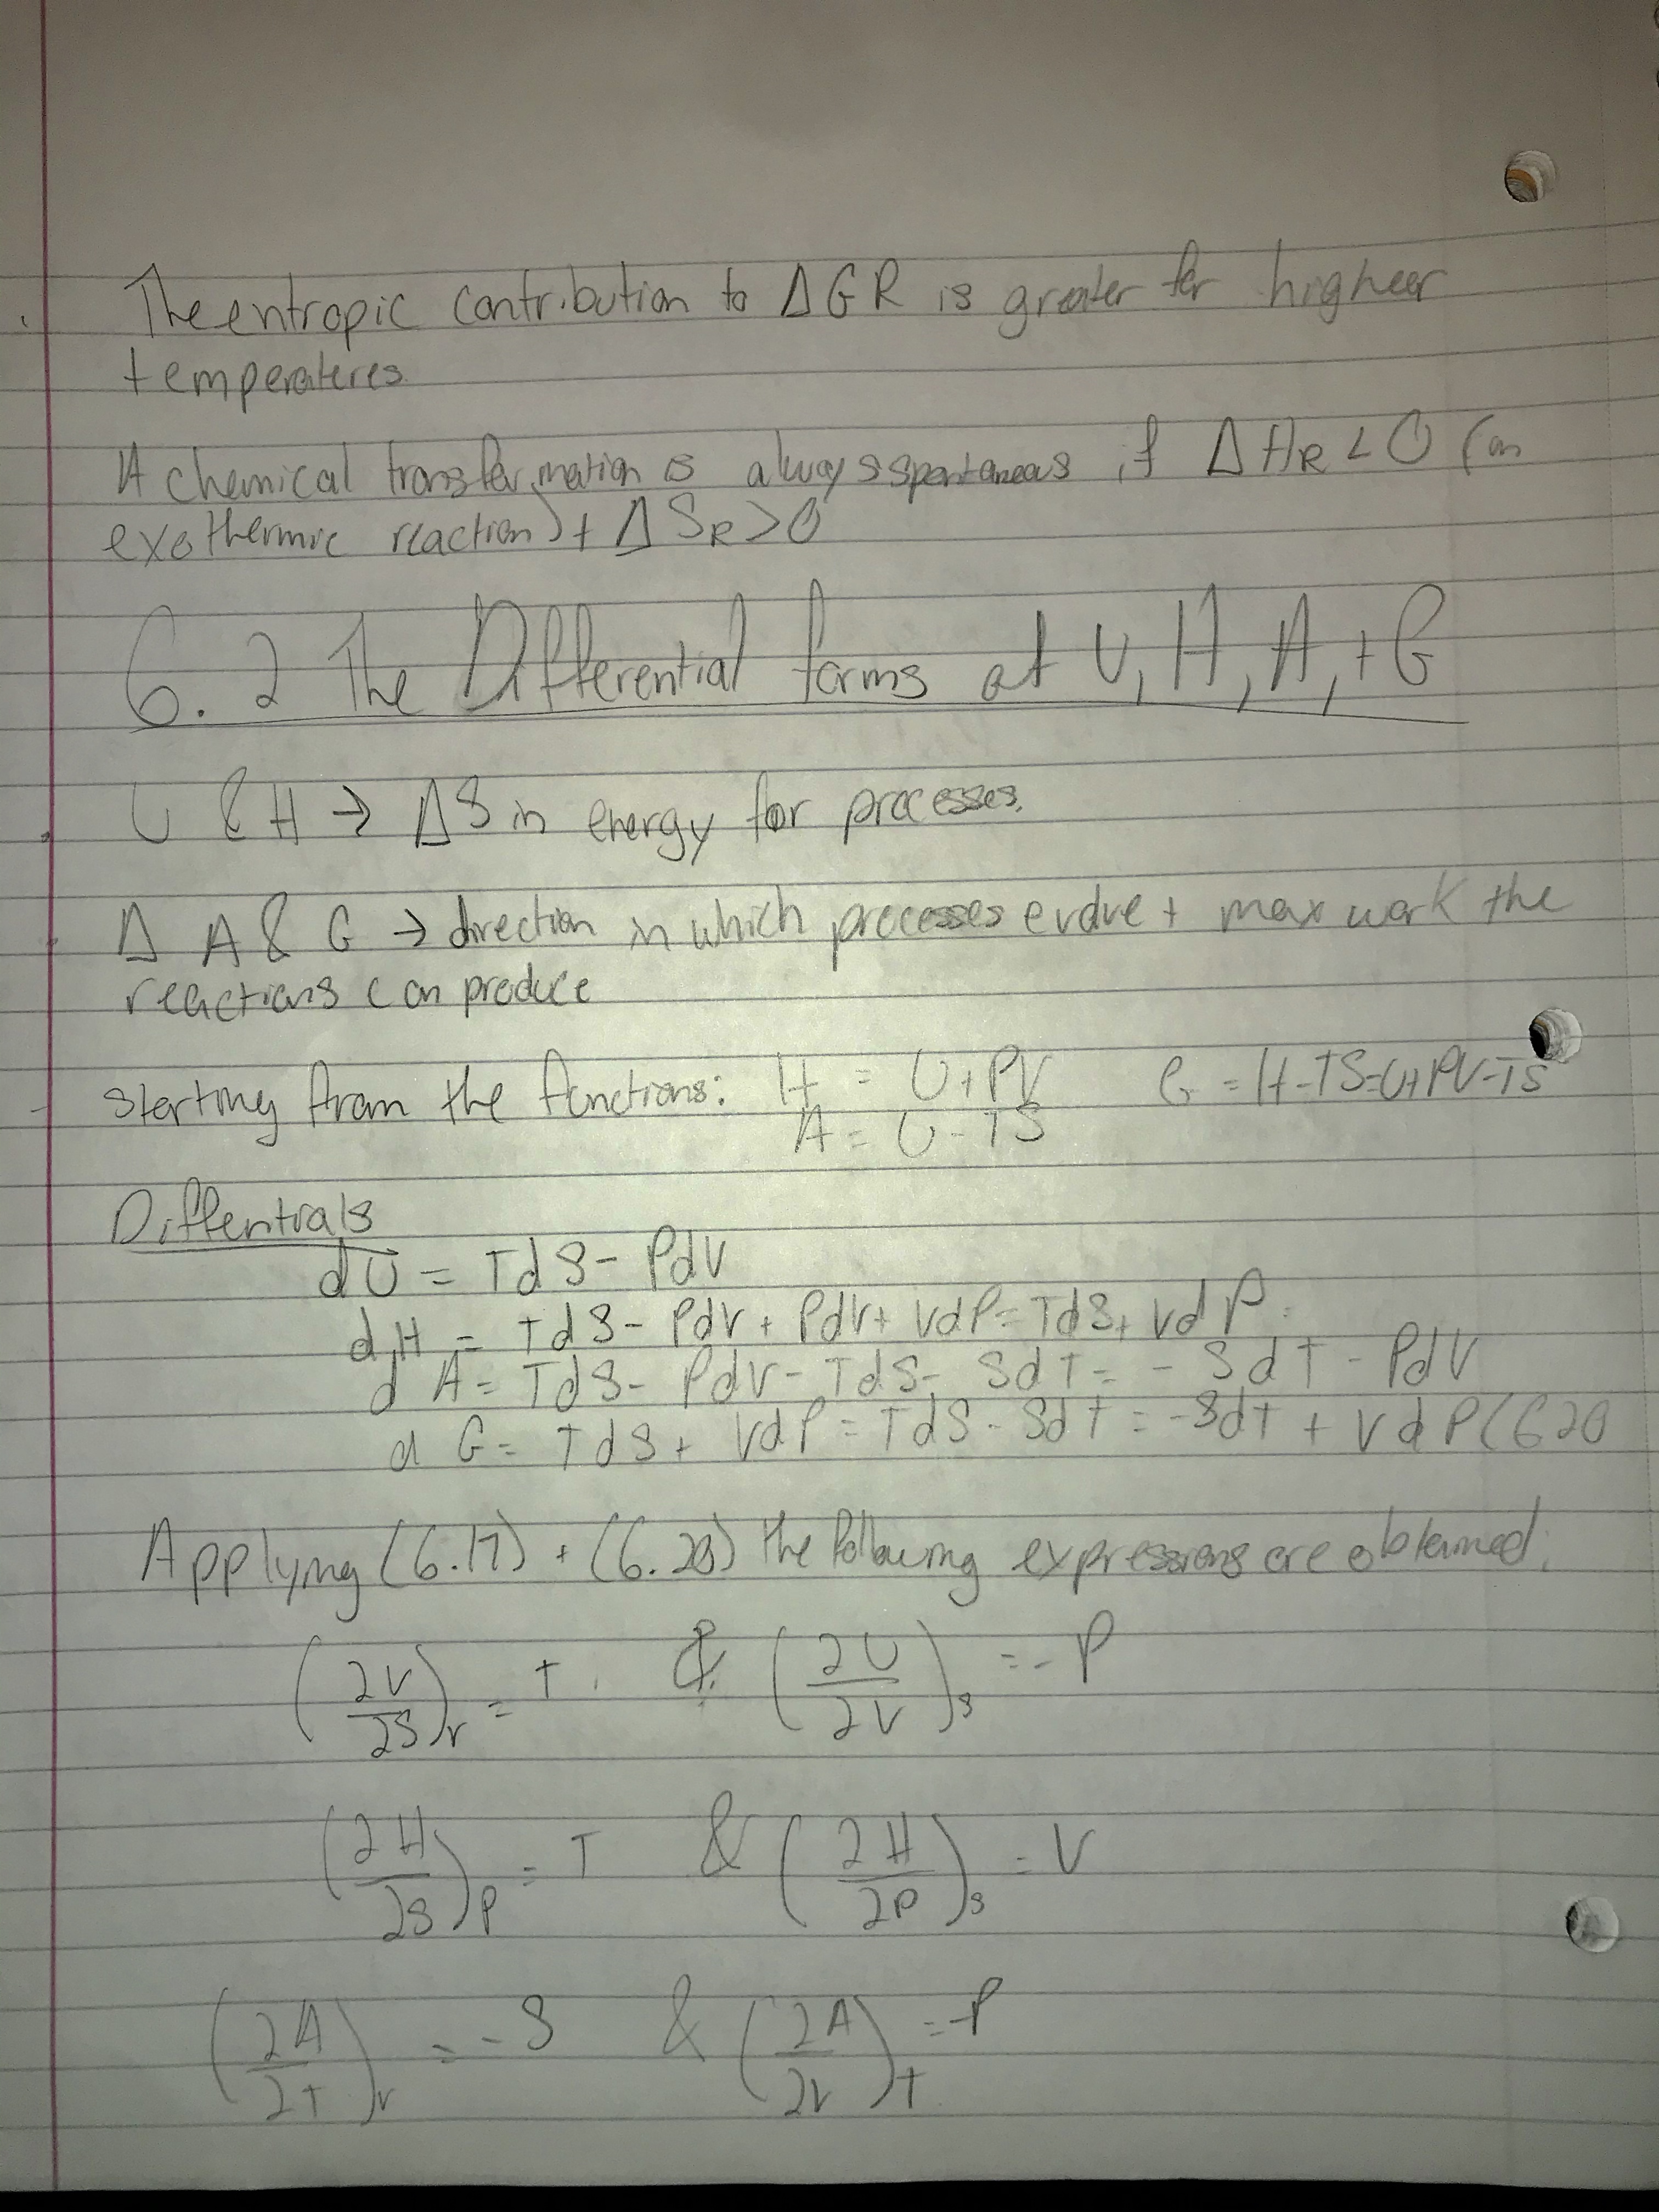 The entropic contribution to ΔGR is greater for higheer
temperateres
A chemical transformation is always spontaneous if ΔHR < 0 (an
exothermic reaction) + ΔSR > 0
6.2 The Differential forms of U, H, A, + G
U & H → ΔS in energy for processes.
Δ A & G → direction in which processes evolve + max work the
reactions can produce
Starting from the functions: H = U + PV G = H - TS = U + PV - TS
A = U - TS
Diffentials
dU = TdS - PdV
dH = TdS - PdV + PdV + VdP = TdS + VdP
dA = TdS - PdV - TdS - SdT = - SdT - PdV
dG = TdS + VdP = TdS - SdT = -SdT + VdP (620
Applying (6.17) + (6.20) the following expressions are obtained.
(∂V/∂S)v = T & (∂U/∂V)s = -P
(∂H/∂S)P = T & (∂H/∂P)s = V
(∂A/∂T)v = -S & (∂A/∂V)T = -P